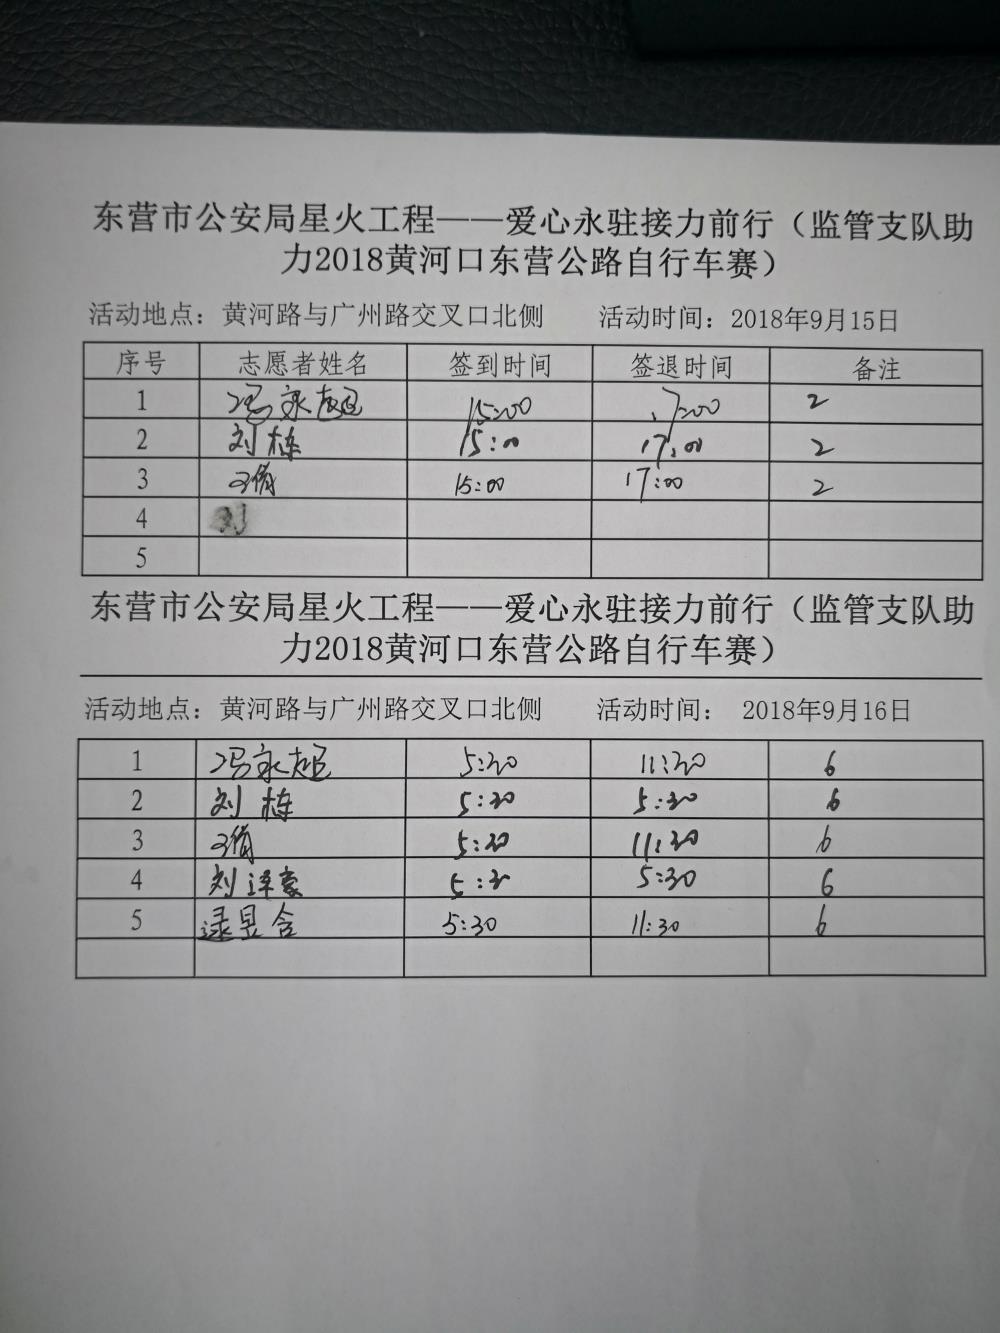 东营市公安局星火工程——爱心永驻接力前行（监管支队助
力2018黄河口东营公路自行车赛）
活动地点：黄河路与广州路交叉口北侧 活动时间：2018年9月15日
序号 志愿者姓名 签到时间 签退时间 备注
1 冯永超 15:00 17:00 2
2 刘栋 15:00 17:00 2
3 15:00 17:00 2
4 刘
5
东营市公安局星火工程——爱心永驻接力前行（监管支队助
力2018黄河口东营公路自行车赛）
活动地点：黄河路与广州路交叉口北侧 活动时间： 2018年9月16日
1 冯永超 5:30 11:30 6
2 刘栋 5:30 5:30 6
3 5:30 11:30 6
4 刘泽豪 5:3 5:30 6
5 逯昱含 5:30 11:30 6